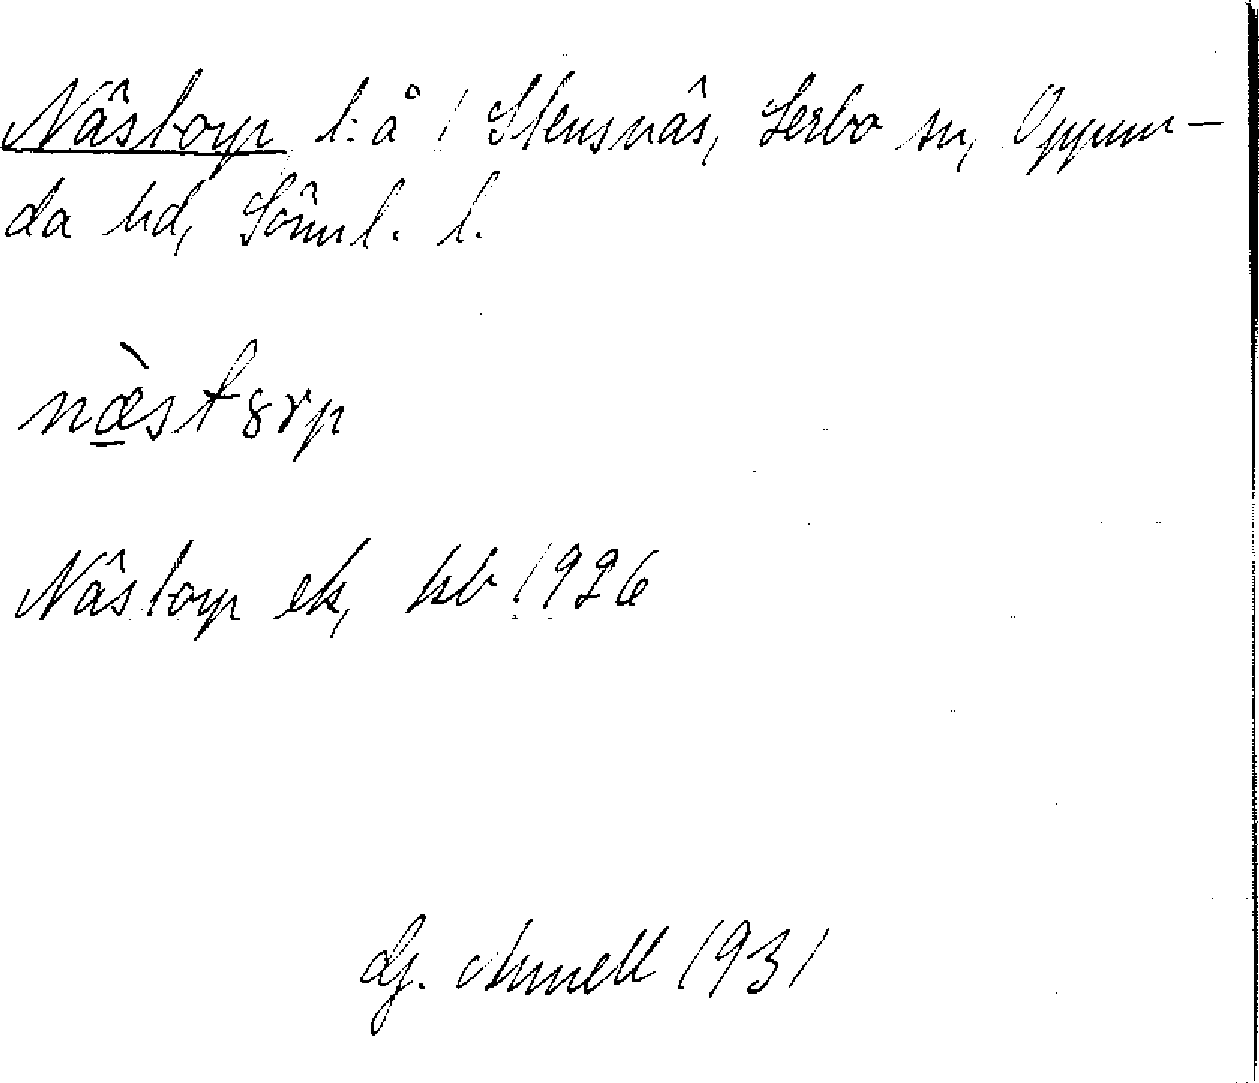 Nästorp t. å / Stensnäs, Lerbo sn, Oppun-
da hd, Söml. l.
næ̀stɤrp
Nästorp ek, kb 1926
G. Annell 1931